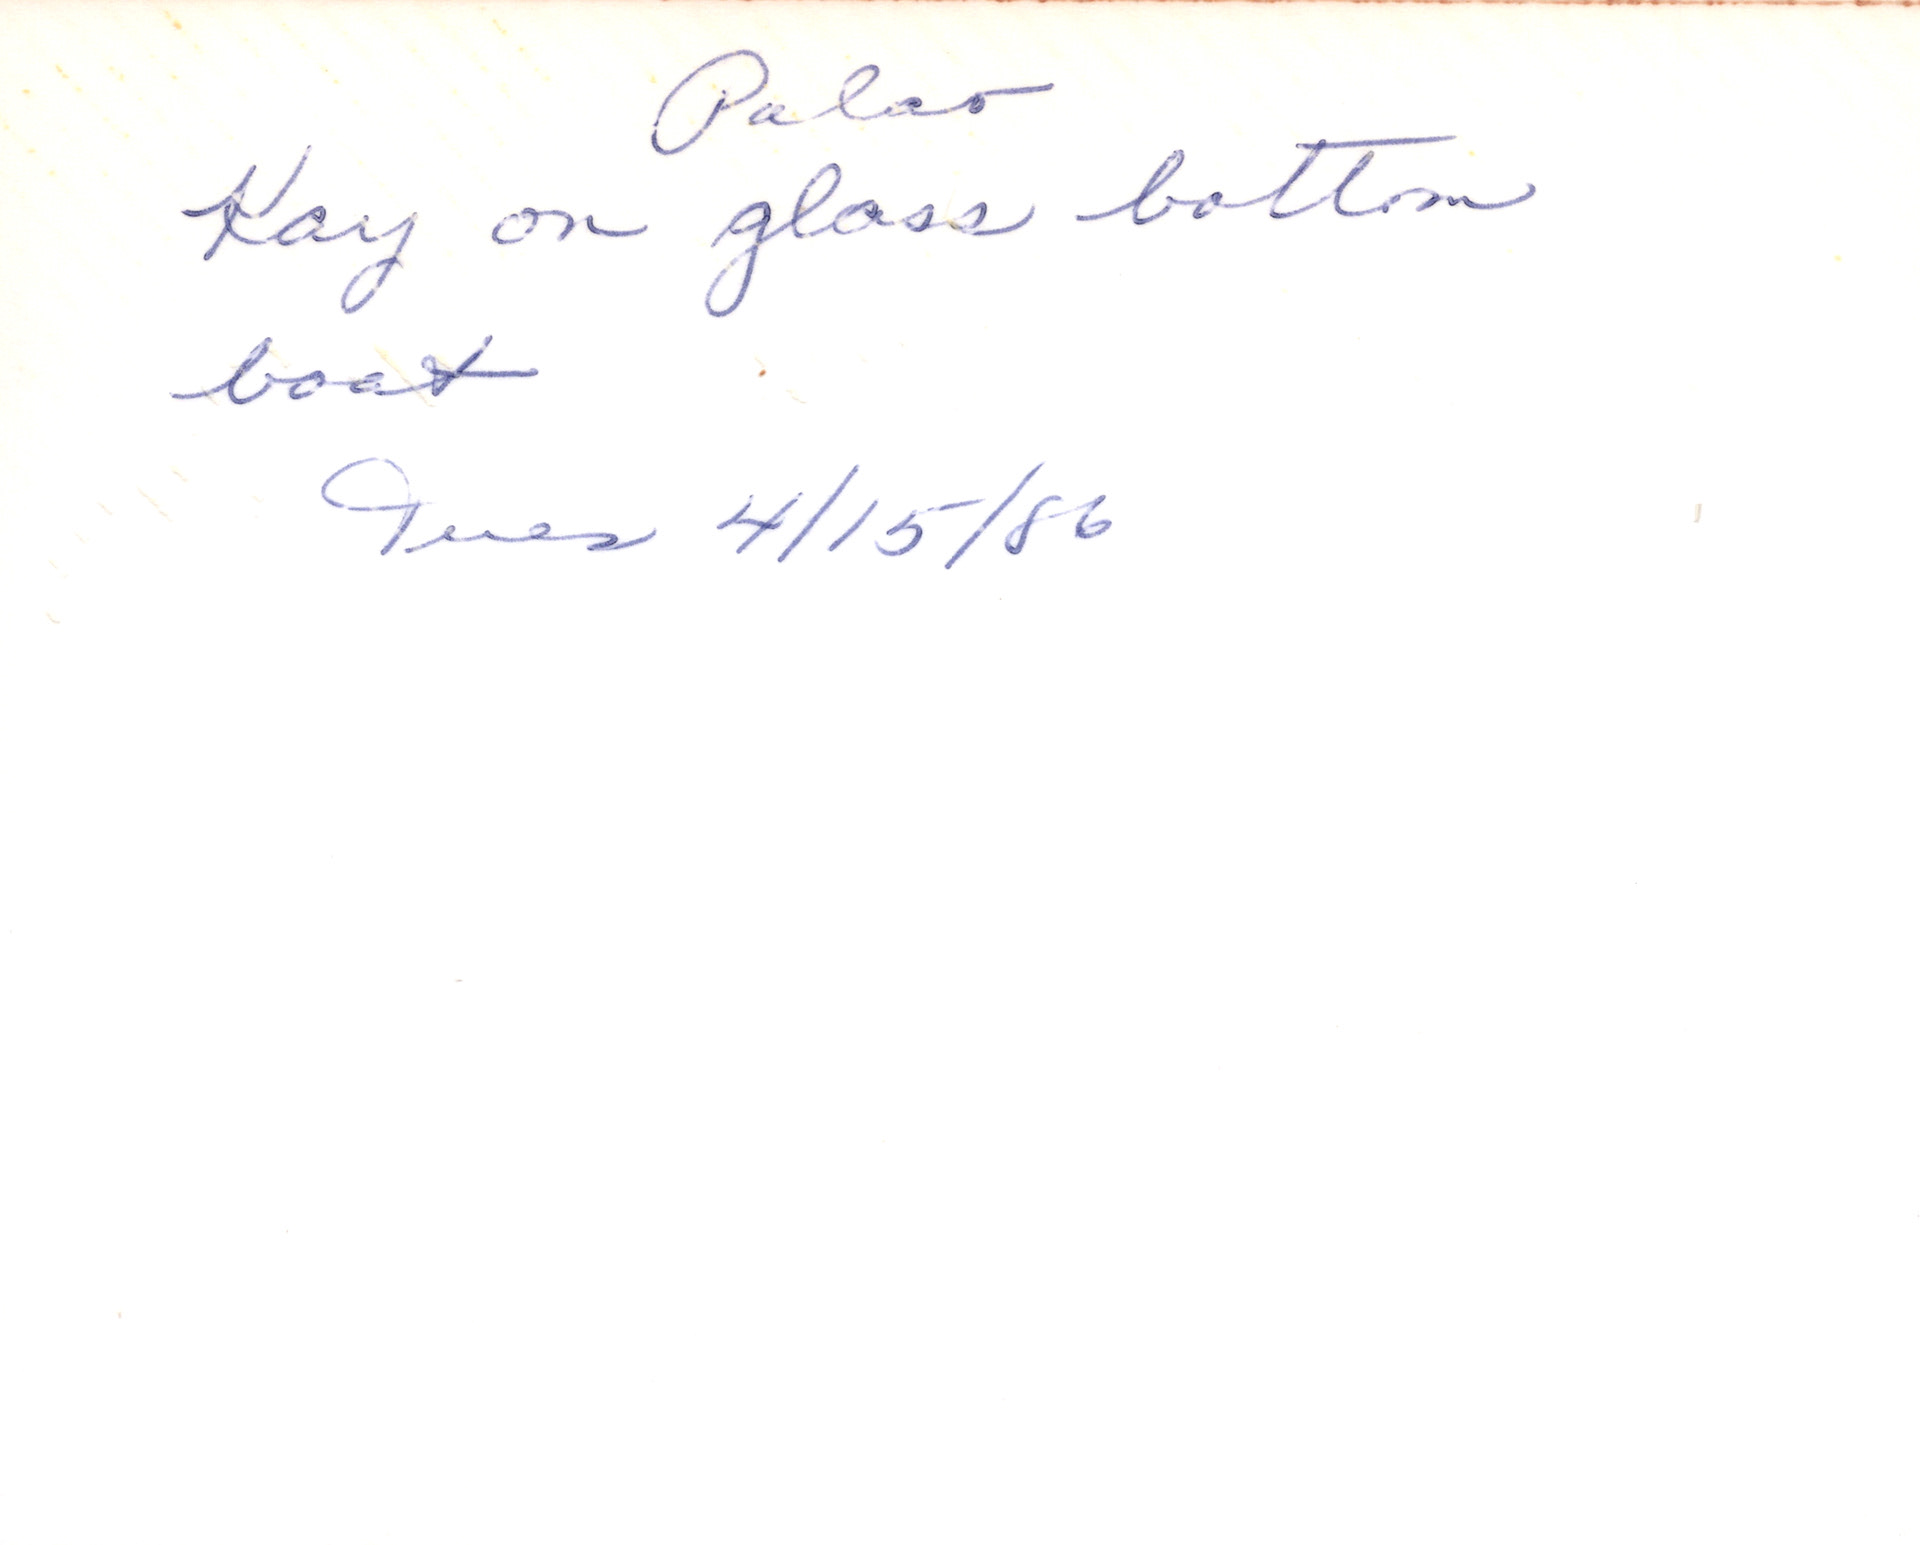 Palao
Kay on glass bottom
boat
Tues 4/15/86